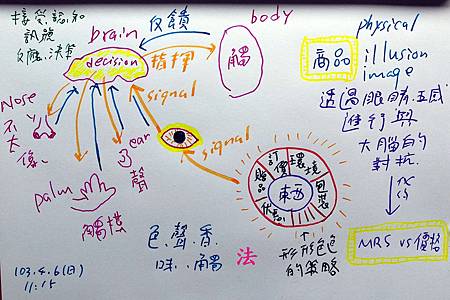 接受、認知
訊號
反應、決策
brain
decision
反饋
指揮
body
觸
signal
signal
Nose
ear
聲
palm
觸摸
東西
訂價
環境
包裝
贈品
形形色色
的策略
色、聲、香、
味、觸
法
商品
physical
illusion
image
透過眼睛、五感
進行與
大腦的
對抗.
MRS vs 價格
103.4.6(日)
11:15